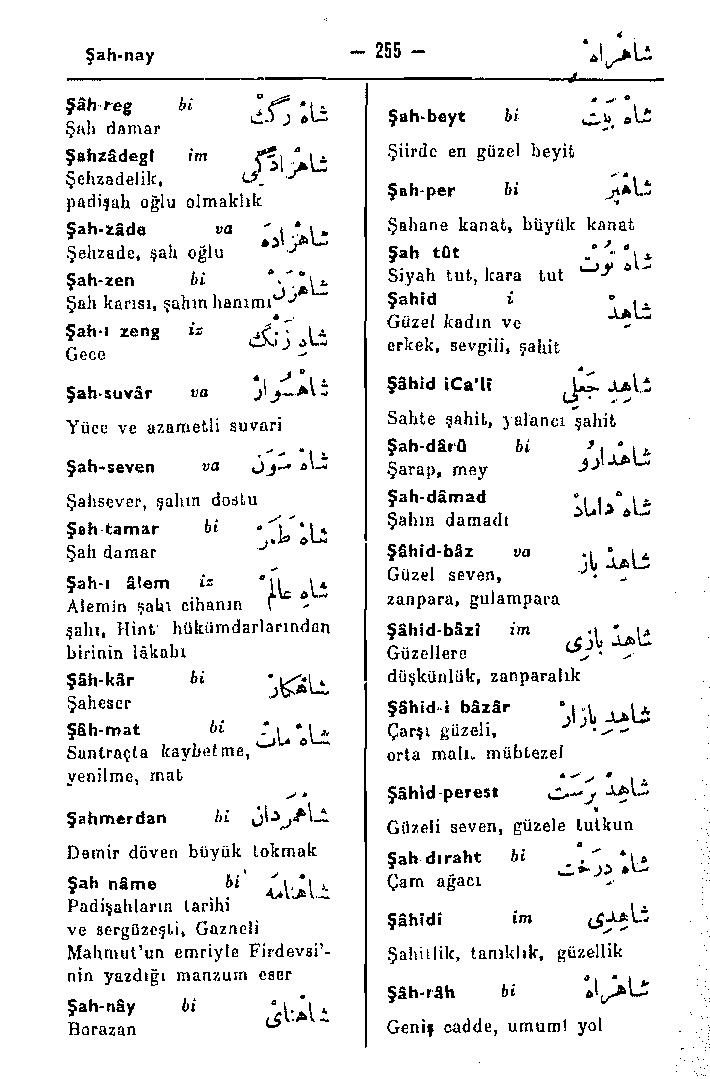 Şah-nay — 255 — شاهْرَاهْ
Şâh-reg bi شاهْ رَكْ
Şah damar
Şahzâdegî im شاهْزَادَكِی
Şehzadelik,
padişah oğlu olmaklık
Şah-zâde va شاهْزَادَه
Şehzade, şah oğlu
Şah-zen bi شاهْزَنْ
Şah karısı, şahın hanımı
Şah-ı zeng iz شاهِ زَنْكْ
Gece
Şah-suvâr va شاهْسُوَارْ
Yüce ve azametli suvari
Şah-seven va شَاهْ سَوَنْ
Şahsever, şahın dostu
Şah-tamar bi شاهْ طَمَرْ
Şah damar
Şah-ı âlem iz شاهِ عَالَمْ
Alemin şahı cihanın
şahı, Hint hükümdarlarından
birinin lâkabı
Şâh-kâr bi شاهْكَارْ
Şaheser
Şâh-mat bi شاهْ مَاتْ
Santraçta kaybetme,
yenilme, mat
Şahmerdan bi شاهْمَرْدَانْ
Demir döven büyük tokmak
Şah nâme bi شاهْنَامَه
Padişahların tarihi
ve sergüzeşti, Gazneli
Mahmut'un emriyle Firdevsi'-
nin yazdığı manzum eser
Şah-nây bi شاهْنَای
Borazan
Şah-beyt bi شَاهْ بَيْتْ
Şiirde en güzel beyit
Şah-per bi شاهْپَرْ
Şahane kanat, büyük kanat
Şah tût شاهْ تُوتْ
Siyah tut, kara tut
Şahid i شاهِدْ
Güzel kadın ve
erkek, sevgili, şahit
Şâhid iCa'lî شاهِدِ جَعْلِی
Sahte şahit, yalancı şahit
Şah-dârû bi شاهْدَارُو
Şarap, mey
Şah-dâmad شاهْ دَامَادْ
Şahın damadı
Şâhid-bâz va شاهِدْ بَازْ
Güzel seven,
zanpara, gulampara
Şâhid-bâzî im شاهِدْ بَازِی
Güzellere
düşkünlük, zanparalık
Şâhid-i bâzâr شاهِدِ بَازَارْ
Çarşı güzeli,
orta malı. mübtezel
Şâhid-perest شَاهِدْ پَرَسْتْ
Güzeli seven, güzele tutkun
Şah dıraht bi شاهْ دِرَخْتْ
Çam ağacı
Şâhidî im شاهِدِی
Şahitlik, tanıklık, güzellik
Şâh-râh bi شاهْرَاهْ
Geniş cadde, umumî yol